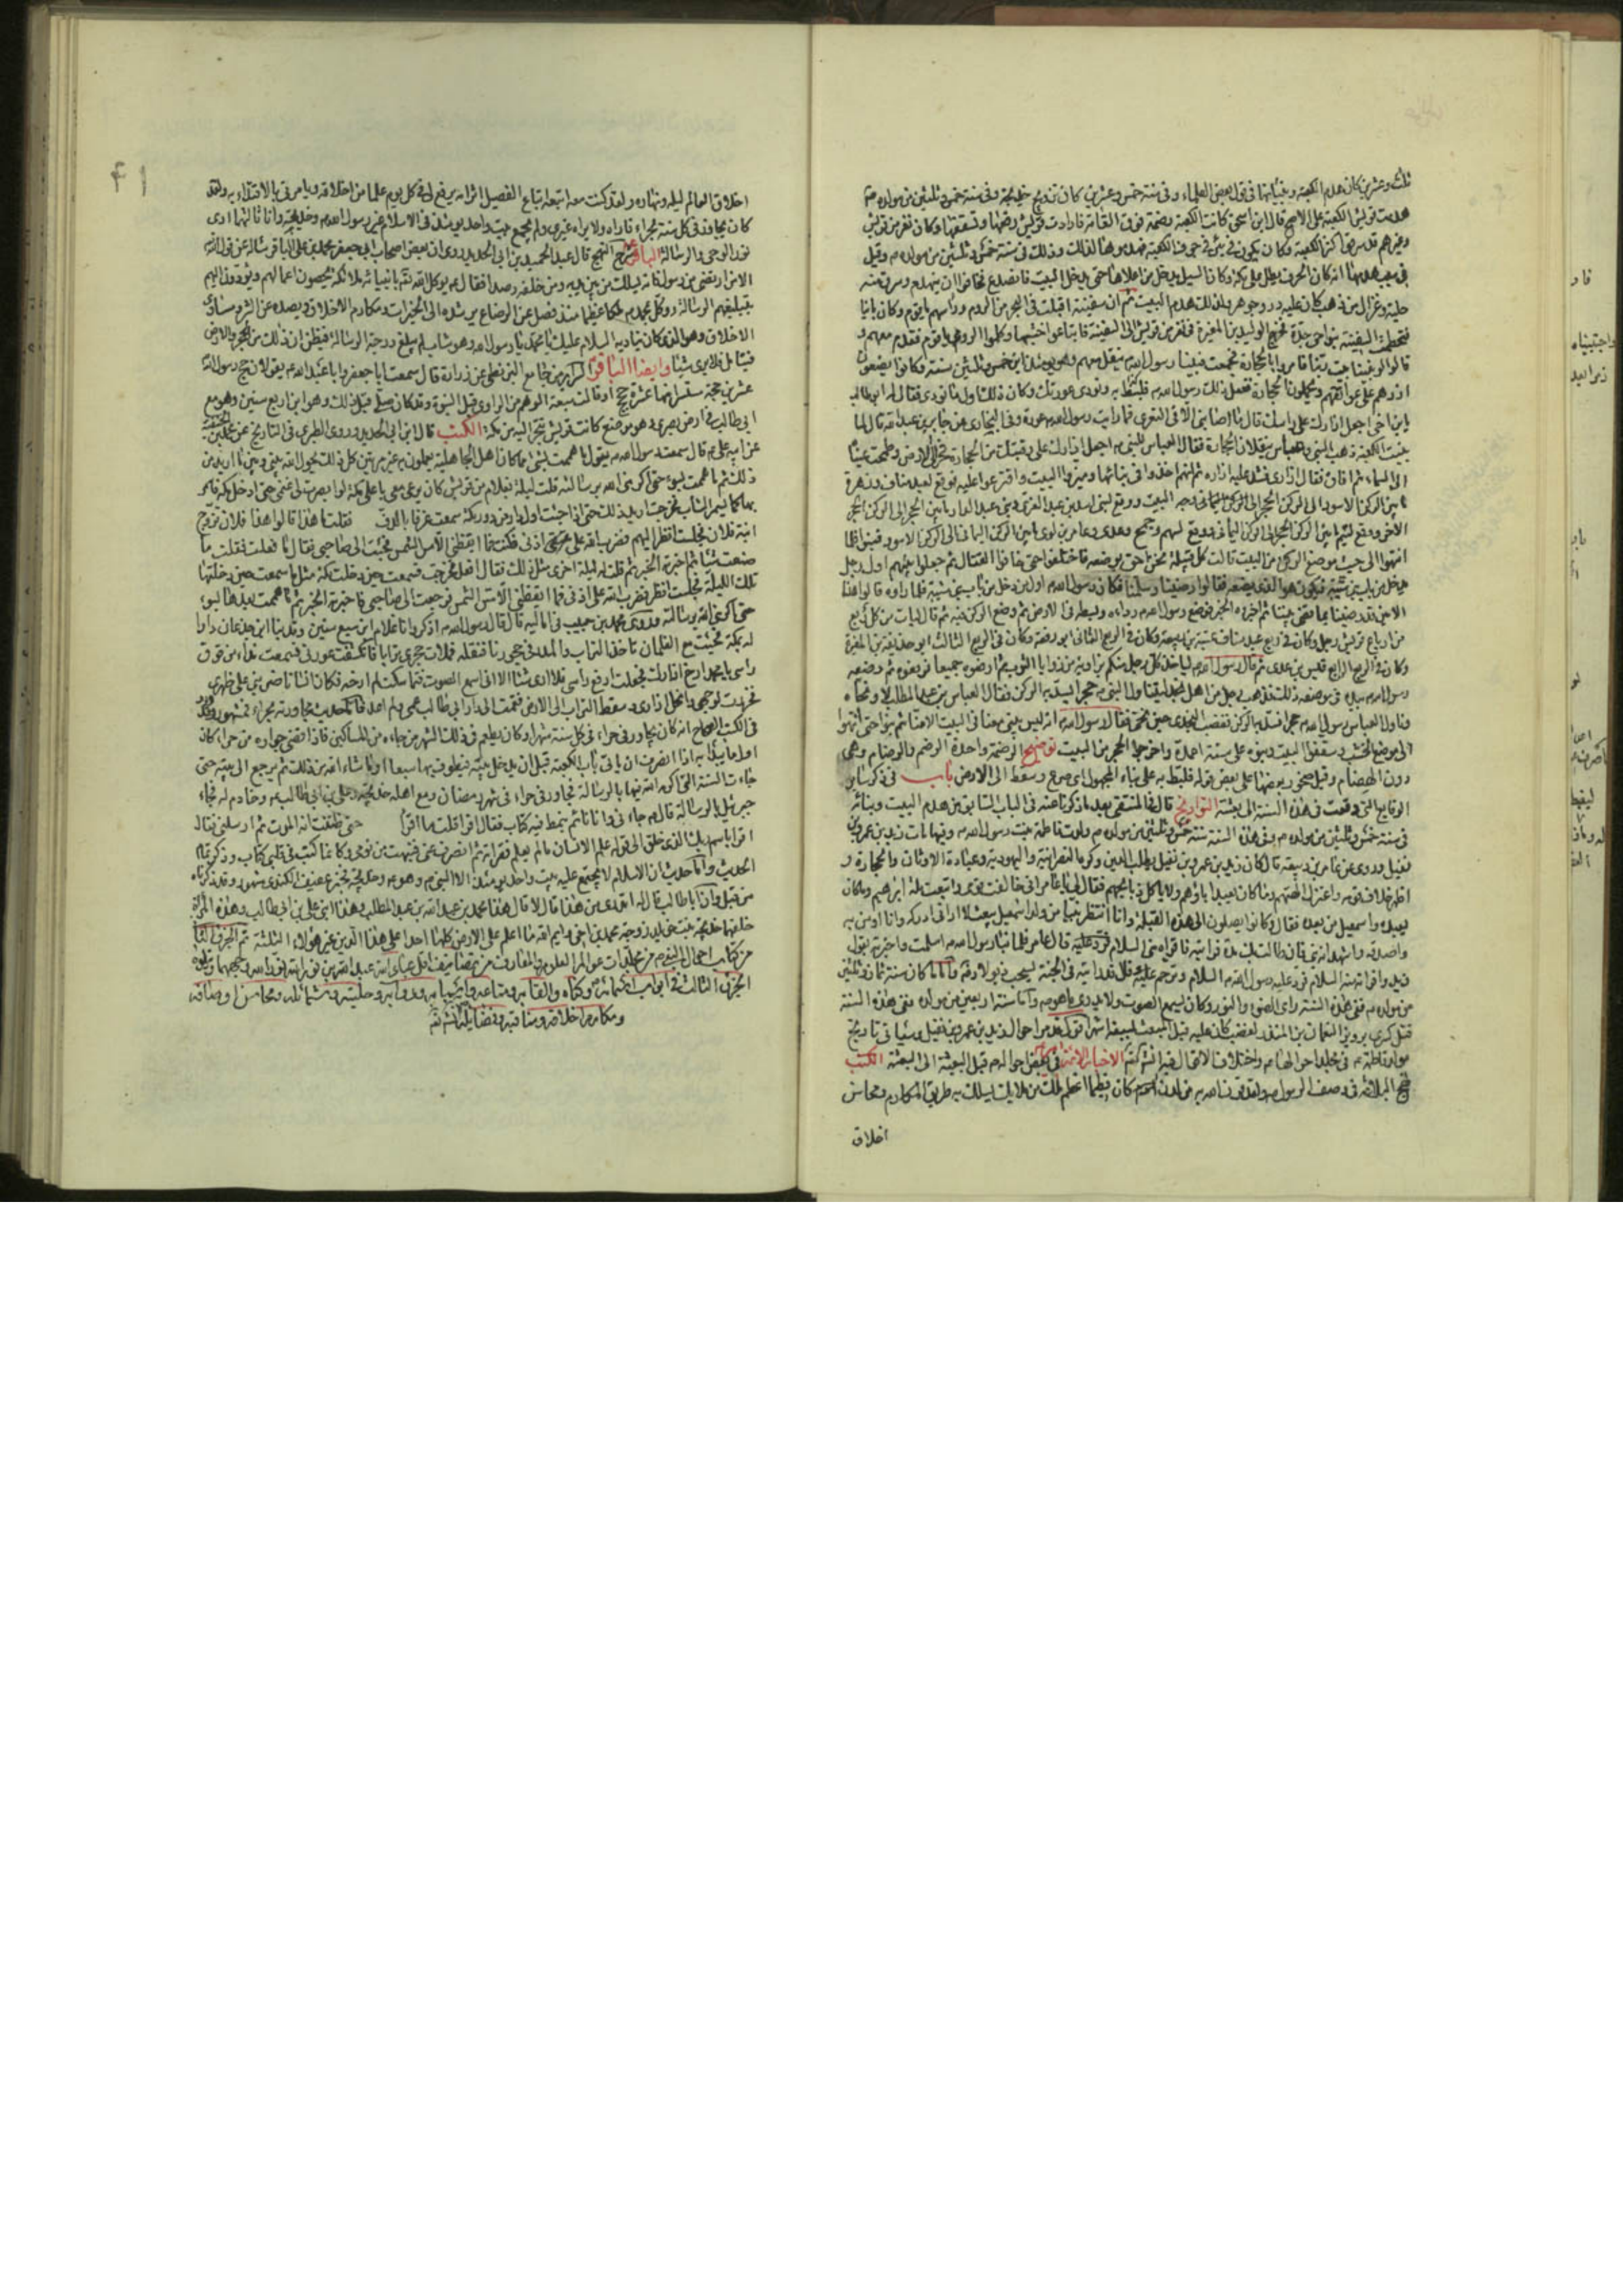 ثلث وعشرين كان هدم الكعبة وبنيانها في قول بعض العلماء وفي سنة خمس وعشرين كان تزويج خديجة وفي سنة خمس وثلثين من مولده
هدمت قريش الكعبة على الاصح قال ابن اسحق كانت الكعبة رضمة فوق القامة فارادت قريش رفعها وتسقيفها وكان نفر من قريش
وغيرهم قد سرقوا كنز الكعبة وكان يكون في بئر في جوف الكعبة فهدموها لذلك وذلك في سنة خمس وثلثين من مولده م وقيل
في سبب هدمها انه كان الجرف يطل على مكة وكان السيل يدخل من اعلاها حتى يدخل البيت فانصدع فخافوا ان ينهدم وسرق منه
حلية وغزال من ذهب كان عليه در وجوهر فلذلك هدم البيت ثم ان سفينة اقبلت في البحر من الروم وراسهم باقوم وكان بانيا
فتحطمت السفينة بنواحي جدة فخرج الوليد بن المغيرة في نفر من قريش الى السفينة فابتاعوا خشبها وكلموا الرومي باقوم فقدم معهم و
قالوا لو بنينا بيت ربنا فامروا بالحجارة فجمعت فبينا رسول الله ينقل معهم وهو يومئذ ابن خمس وثلثين سنة وكانوا يضعون
ازرهم على عواتقهم ويحملون الحجارة ففعل ذلك رسول الله م فلبط به ونودي عورتك وكان ذلك اول ما نودي فقال له ابو طالب
يا ابن اخي اجعل ازارك على راسك قال ما اصابني الا في التعري فما رايت رسول الله م عورة وفي البخاري عن جابر بن عبد الله قال لما
بنيت الكعبة ذهب النبي وعباس ينقلان الحجارة فقال العباس للنبي م اجعل ازارك على رقبتك من الحجارة فخر الى الارض وطمحت عيناه
الى السماء ثم افاق فقال ازاري فشد عليه ازاره ثم انهم اخذوا في بنائها وميزوا البيت واقترعوا عليه فوقع لعبد مناف وزهرة
ما بين الركن الاسود الى الركن الحجر
الاخر ووقع لتيم
انتهوا الى حيث موضع الركن من البيت قالت كل قبيلة نحن احق بوضعه فاختلفوا حتى خافوا القتال ثم جعلوا بينهم اول رجل
يدخل من باب بني شيبة فيكون هو الذي يضعه فقالوا رضينا وسلمنا فكان رسول الله م اول من دخل من باب بني شيبة فلما راوه قالوا هذا
الامين قد رضينا بما قضى بيننا ثم اخبروه الخبر فوضع رسول الله م رداءه وبسطه في الارض ثم وضع الركن فيه ثم قال ليات من كل ربع
من ارباع قريش رجل وكان في ربع عبد مناف عتبة بن ربيعة وكان في الربع الثاني ابو زمعة وكان في الربع الثالث ابو حذيفة بن المغيرة
وكان في الربع الرابع قيس بن عدي ثم قال رسول الله م لياخذ كل رجل منكم بزاوية من زوايا الثوب ثم ارفعوه جميعا فرفعوه ثم وضعه
رسول الله م بيده في موضعه ذلك فذهب رجل من اهل نجد ليناول النبي م حجرا ليسد به الركن فقال العباس بن عبد المطلب لا ونحاه
وناول العباس رسول الله م حجرا فسد به الركن فغضب النجدي حين نحي فقال رسول الله م انه ليس يبني معنا في البيت الا منا ثم بنوا حتى انتهوا
الى موضع الخشب وسقفوا البيت وبنوه على ستة اعمدة واخرجوا الحجر من البيت توضيح الرضمة واحدة الرضم والرضام وهي
دون الهضاب وقيل صخور بعضها على بعض قوله فلبط به على بناء المجهول اي صرع وسقط الى الارض باب في ذكر سائر
الوقايع التي وقعت في هذه السنة الى بعثته التواريخ قال في المنتقى بعد ما ذكرنا عنه في الباب السابق من هدم البيت وبنائه
في سنة خمس وثلثين من مولده م وفي هذه السنة سنة خمس وثلثين من مولده م ولدت فاطمة بنت رسول الله م وفيها مات زيد بن عمرو بن
نفيل وروي عن عامر بن ربيعة قال كان زيد بن عمرو بن نفيل يطلب الدين وكره النصرانية واليهودية وعبادة الاوثان والحجارة و
اظهر خلاف قومه واعتزل الهتهم وما كان يعبد اباؤهم ولا ياكل ذبائحهم فقال لي يا عامر اني خالفت قومي واتبعت ملة ابرهيم وما كان
يعبده واسمعيل من بعده فقال وكانوا يصلون الى هذه القبلة وانا انتظر نبيا من ولد اسمعيل يبعث لا اراني ادركه وانا اومن به
واصدقه واشهد انه نبي فان طالت بك مدة فرايته فاقراه مني السلام قال عامر فلما نبا رسول الله م اسلمت واخبرته بقول
زيد واقراته منه السلام فرد عليه رسول الله م السلام وترحم عليه وقال قد رايته في الجنة يسحب ذيولا
من مولده م ففي هذه السنة راى الضوء والنور وكان يسمع الصوت ولا يدري ما هو م واما سنة اربعين من مولده م ففي هذه السنة
قتل كسرى برويز النعمان بن المنذر لغضب كان عليه قبل المبعث بسبعة اشهر
الاخبار الائمة
نهج البلاغة في وصف الرسول م ولقد قرن الله به من لدن ان كان فطيما اعظم ملك من ملايكته يسلك به طريق المكارم ومحاسن
اخلاق
۴۱
اخلاق العالم ليله ونهاره ولقد كنت معه اتبعه اتباع الفصيل اثر امه يرفع لي في كل يوم علما من اخلاقه ويامرني بالاقتداء به ولقد
كان يجاور في كل سنة بحراء فاراه ولا يراه غيري ولم يجمع بيت واحد يومئذ في الاسلام غير رسول الله م وخديجة وانا ثالثهما ارى
نور الوحي والرسالة الباقر شرح النهج قال عبد الحميد بن ابي الحديد روي ان بعض اصحاب ابي جعفر محمد بن علي الباقر ساله عن قول الله
الا من ارتضى من رسول فانه يسلك من بين يديه ومن خلفه رصدا فقال م يوكل الله تعه بانبيائه ملائكة يحصون اعمالهم ويؤدون اليهم
بتبليغهم الرسالة ووكل بمحمد م ملكا عظيما منذ فصل عن الرضاع يرشده الى الخيرات ومكارم الاخلاق ويصده عن الشر ومساوي
الاخلاق وهو الذي كان يناديه السلام عليك يا محمد يا رسول الله وهو شاب لم يبلغ درجة الرسالة فيظن ان ذلك من الحجر والارض
فيتامل فلا يرى شيئا وايضا الباقر السرائر من جامع البزنطي عن زرارة قال سمعت ابا جعفر وابا عبد الله م يقولان حج رسول الله
عشرين حجة مستسرا منها عشرة حجج او قالت سبعة الوهم من الراوي قبل النبوة وقد كان صلى قبل ذلك وهو ابن اربع سنين وهو مع
ابي طالب في ارض بصرى وهو موضع كانت قريش تتجر اليه من مكة الكتب قال ابن ابي الحديد وروى الطبري في التاريخ عن محمد بن الحنفية
عن ابيه علي م قال سمعت رسول الله م يقول ما هممت بشيء مما كان اهل الجاهلية يعملون به غير مرتين كل ذلك يحول الله بيني وبين ما اريد من
ذلك ثم ما هممت بسوء حتى اكرمني الله برسالته قلت ليلة لغلام من قريش كان يرعى معي باعلى مكة لو ابصرت لي غنمي حتى ادخل مكة فاسمر
بها كما يسمر الشباب فخرجت اريد ذلك حتى اذا جئت اول دار من دور مكة سمعت عزفا بالدف فقلت ما هذا قالوا هذا فلان تزوج
ابنة فلان فجلست انظر اليهم فضرب الله على اذني فنمت فما ايقظني الا مس الشمس فجئت الى صاحبي فقال ما فعلت فقلت ما
صنعت شيئا ثم اخبرته الخبر ثم قلت له ليلة اخرى مثل ذلك فقال افعل فخرجت فسمعت حين دخلت مكة مثل ما سمعت حين دخلتها
تلك الليلة فجلست انظر فضرب الله على اذني فما ايقظني الا مس الشمس فرجعت الى صاحبي فاخبرته الخبر ثم ما هممت بعدها بسوء
حتى اكرمني الله برسالته وروى محمد بن حبيب في اماليه قال قال رسول الله م اذكر وانا غلام ابن سبع سنين وقد بنى ابن جدعان دارا
له بمكة فجئت مع الغلمان ناخذ التراب والمدر في حجورنا فننقله فملات حجري ترابا فانكشفت عورتي فسمعت نداء من فوق
راسي يا محمد ارخ ازارك فجعلت ارفع راسي فلا ارى شيئا الا اني اسمع الصوت فتماسكت ولم ارخه فكان انسانا ضربني على ظهري
فخررت لوجهي وانحل ازاري وسقط التراب الى الارض فقمت الى دار ابي طالب عمي ولم اعد فاما حديث مجاورته بحراء فمشهور وقد ورد
في الكتب الصحاح انه كان يجاور في حراء في كل سنة شهرا وكان يطعم في ذلك الشهر من جاءه من المساكين فاذا قضى جواره من حراء كان
اول ما يبدا به اذا انصرف ان ياتي باب الكعبة قبل ان يدخل بيته فيطوف بها سبعا او ما شاء الله من ذلك ثم يرجع الى بيته حتى
جاءت السنة التي اكرمه الله فيها بالرسالة فجاور في حراء في شهر رمضان ومع اهله خديجة وعلي بن ابي طالب م وخادم له فجاءه
جبرئيل بالرسالة قال م جاءني وانا نائم بنمط فيه كتاب فقال اقرا قلت ما اقرا حتى ظننت انه الموت ثم ارسلني فقال
اقرا باسم ربك الذي خلق الى قوله علم الانسان ما لم يعلم فقراته ثم انصرف عني فنبهت من نومي وكانما كتب في قلبي كتاب وذكر تمام
الحديث واما حديث ان الاسلام لم يجتمع عليه بيت واحد يومئذ الا النبي م وهو م وخديجة فخبر عفيف الكندي مشهور وقد ذكرناه
من قبل وان ابا طالب قال له اتدري من هذا قال لا قال هذا محمد بن عبد الله بن عبد المطلب وهذا ابني علي بن ابي طالب وهذه المراة
خلفهما خديجة بنت خويلد زوجة محمد ابن اخي وايم الله ما اعلم على الارض كلها احدا على هذا الدين غير هؤلاء الثلثة تم الجزء الثاني
ومكارم اخلاقه ومناقبه وفضايله